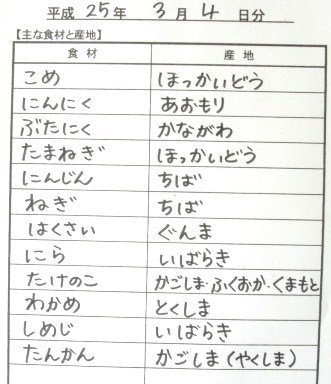 平成 25年 3月 4 日分
【主な食材と産地】
食材 産地
こめ ほっかいどう
にんにく あおもり
ぶたにく かながわ
たまねぎ ほっかいどう
にんじん ちば
ねぎ ちば
はくさい ぐんま
にら いばらき
たけのこ かごしま・ふくおか・くまもと
わかめ とくしま
しめじ いばらき
たんかん かごしま(やくしま)